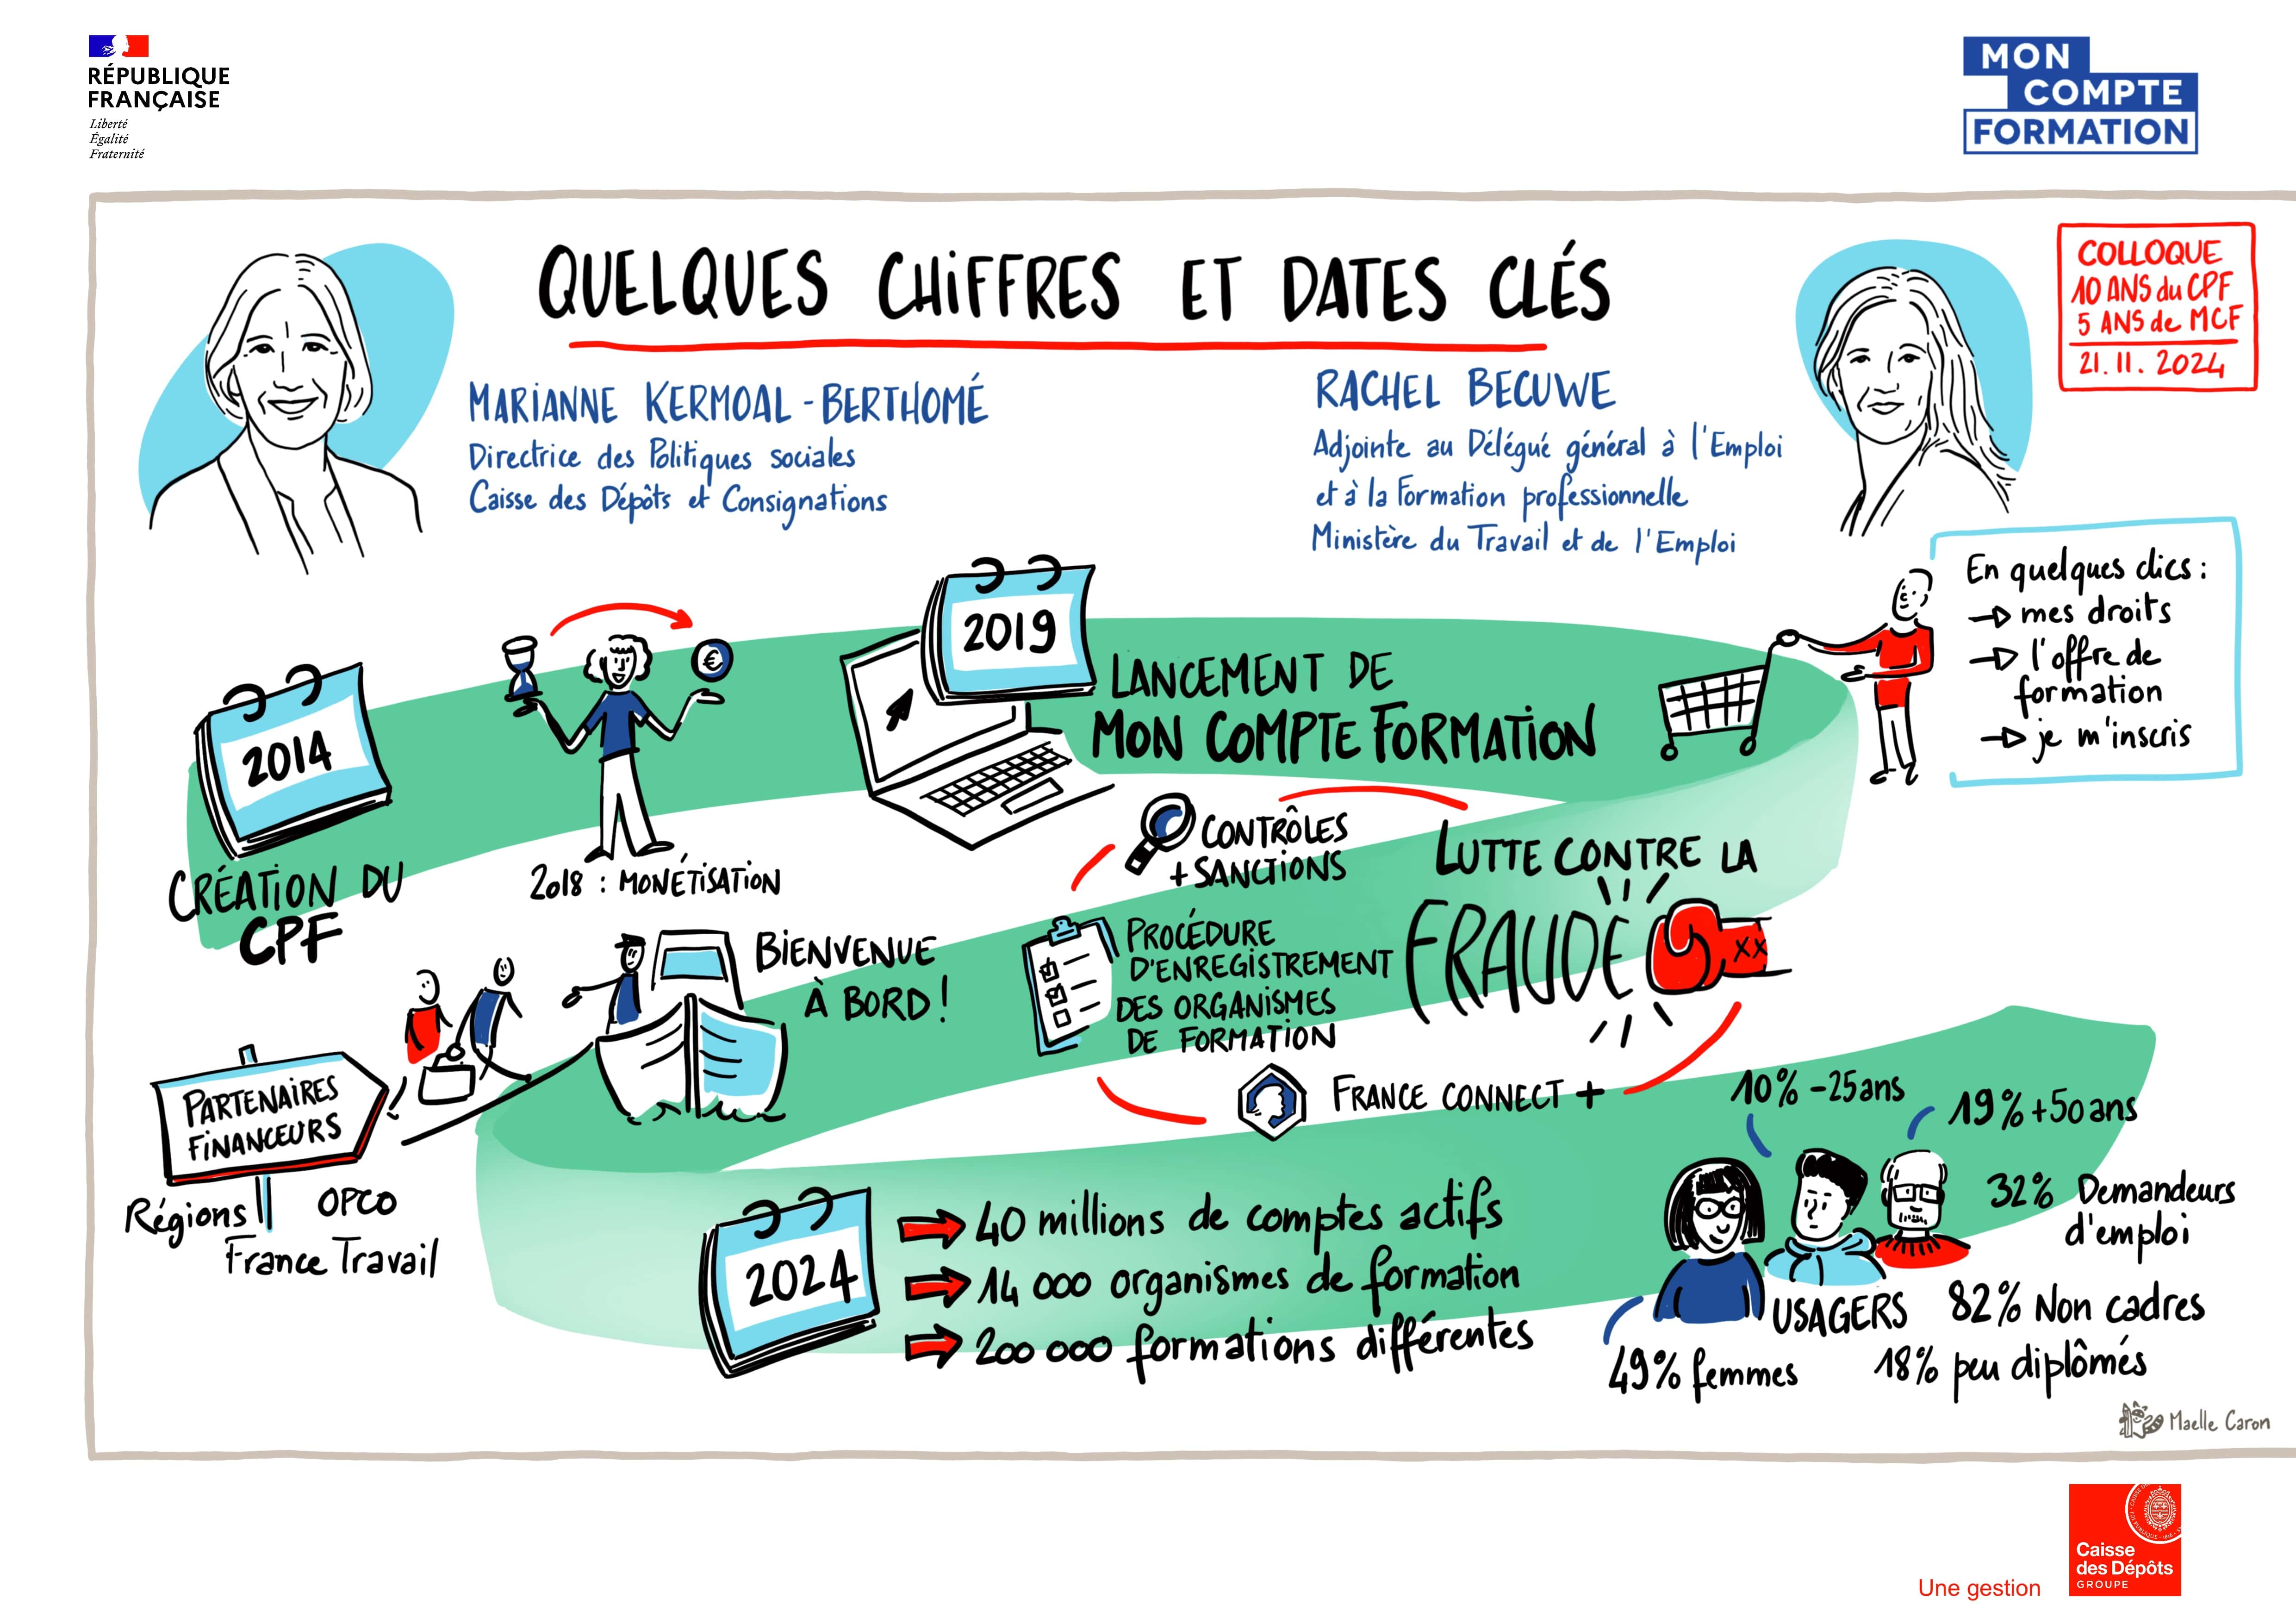 RÉPUBLIQUE
FRANÇAISE
Liberté
Égalité
Fraternité
MON
COMPTE
FORMATION
QUELQUES CHIFFRES ET DATES CLÉS
COLLOQUE
10 ANS du CPF
5 ANS de MCF
21.11.2024
MARIANNE KERMOAL-BERTHOMÉ
Directrice des Politiques sociales
Caisse des Dépôts et Consignations
RACHEL BECUWE
Adjointe au Délégué général à l'Emploi
et à la Formation professionnelle
Ministère du Travail et de l'Emploi
2014
CRÉATION DU
CPF
€
2018 : MONÉTISATION
2019
LANCEMENT DE
MON COMPTE FORMATION
En quelques clics :
→ mes droits
→ l'offre de
formation
→ je m'inscris
LUTTE CONTRE LA
FRAUDE
XX
CONTRÔLES
+ SANCTIONS
PROCÉDURE
D'ENREGISTREMENT
DES ORGANISMES
DE FORMATION
FRANCE CONNECT +
BIENVENUE
À BORD !
PARTENAIRES
FINANCEURS
Régions
OPCO
France Travail
2024
40 millions de comptes actifs
14 000 organismes de formation
200 000 formations différentes
10% -25ans
19% +50ans
32% Demandeurs
d'emploi
USAGERS
82% Non cadres
49% femmes
18% peu diplômés
Maelle Caron
Une gestion
Caisse
des Dépôts
GROUPE